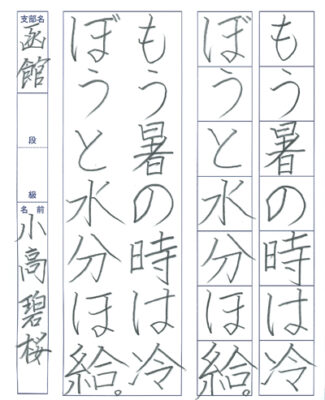 もう暑の時は冷
ぼうと水分ほ給。
もう暑の時は冷
ぼうと水分ほ給。
支部名
函館
段
級
名前
小高碧桜